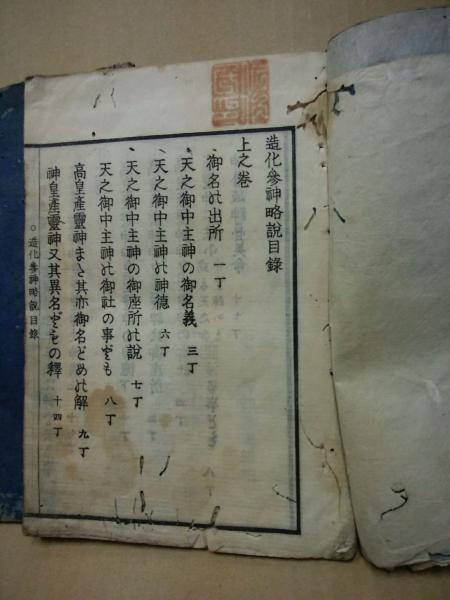 造化參神略說目錄
上之卷
御名の出所 一丁
天之御中主神の御名義 三丁
天之御中主神の神德 六丁
天之御中主神の御座所の說 七丁
天之御中主神の御社の事ども 八丁
高皇產靈神また其亦御名どもの解 九丁
神皇產靈神又其異名どもの釋 十四丁
○造化參神略說目錄